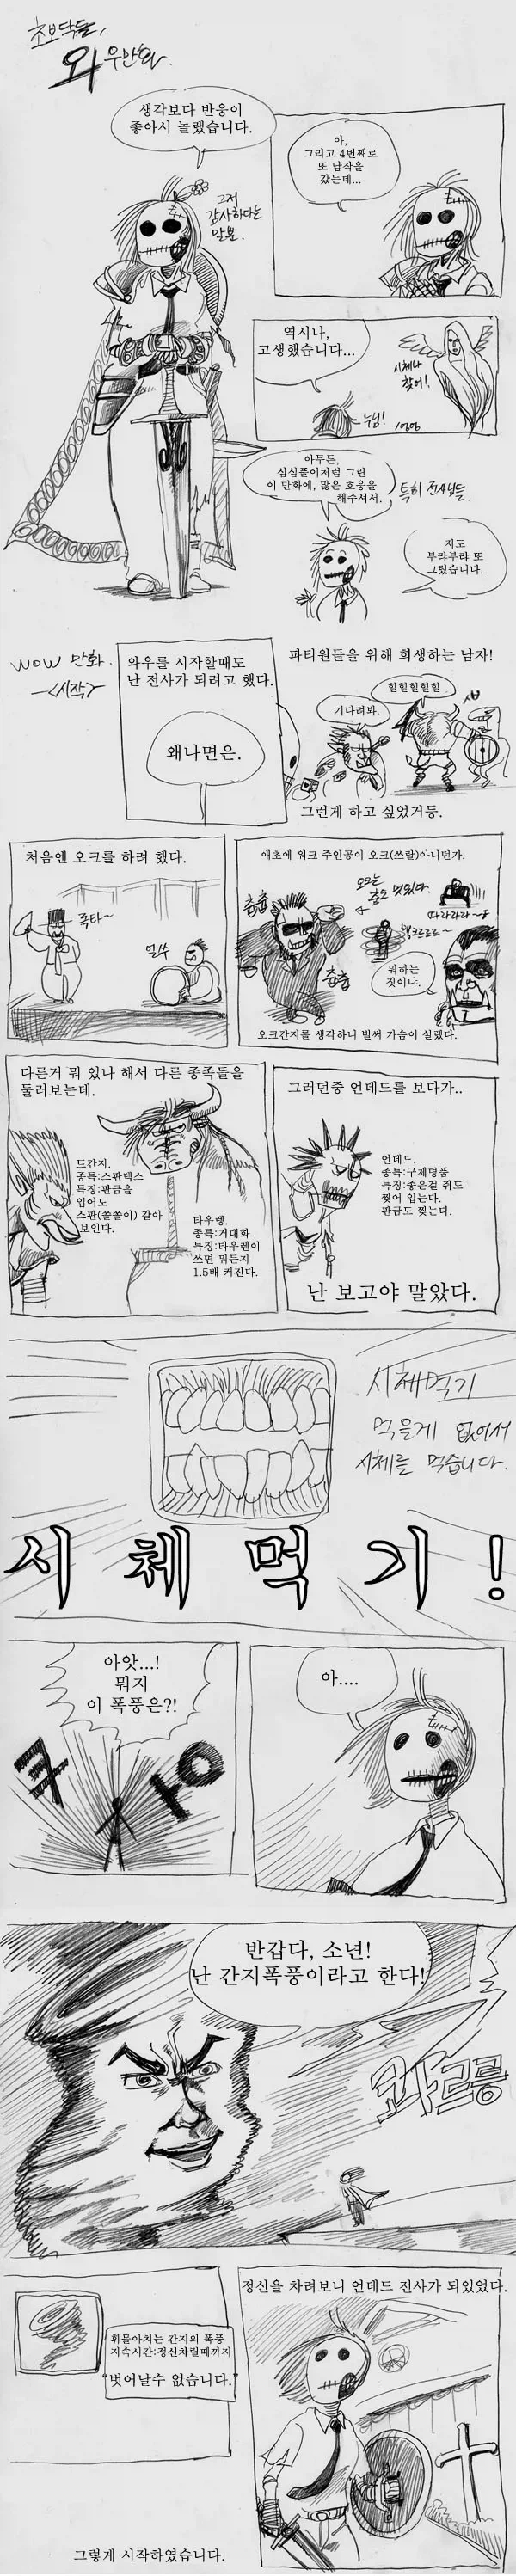 초보닥둘,
와우만화.
생각보다 반응이
좋아서 놀랬습니다.
그저
감사하다는
말뿐.
아,
그리고 4번째로
또 납작을
갔는데...
역시나,
고생했습니다...
시체나
찾어!
누님!
아무튼,
심심풀이처럼 그린
이 만화에, 많은 호응을
해주셔서.
특히 전사분들.
저도
부랴부랴 또
그렸습니다.
WOW 만화.
-<시작>
와우를 시작할때도
난 전사가 되려고 했다.
왜나면은.
파티원들을 위해 희생하는 남자!
힐힐힐힐힐
기다려봐.
그런게 하고 싶었거등.
처음엔 오크를 하려 했다.
록타~
얼쑤
애초에 워크 주인공이 오크(쓰랄)아니던가.
춤춤
오크는
춤도 멋있다.
따라라라~
춤춤
뭐하는
짓이냐.
오크간지를 생각하니 벌써 가슴이 설렜다.
다른거 뭐 있나 해서 다른 종족들을
둘러보는데.
트간지.
종특:스판텍스
특징:판금을
입어도
스판(쫄쫄이) 같아
보인다.
타우렝.
종특:거대화
특징:타우렌이
쓰면 뭐든지
1.5배 커진다.
그러던중 언데드를 보다가..
언데드.
종특:구제명품
특징:좋은걸 줘도
찢어 입는다.
판금도 찢는다.
난 보고야 말았다.
시체먹기
먹을게 없어서
시체를 먹습니다.
시체먹기!
아앗...!
뭐지
이 폭풍은?!
쿠
아....
반갑다, 소년!
난 간지폭풍이라고 한다!
콰르릉
휘몰아치는 간지의 폭풍
지속시간:정신차릴때까지
"벗어날수 없습니다."
정신을 차려보니 언데드 전사가 되있었다.
그렇게 시작하였습니다.